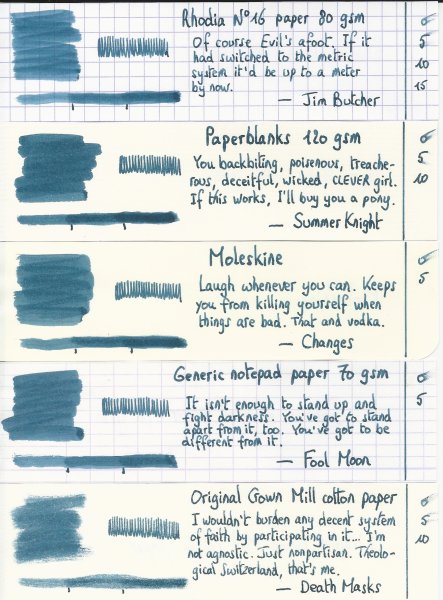 Rhodia N°16 paper 80 gsm
Of course Evil's afoot. If it
had switched to the metric
system it'd be up to a meter
by now.
— Jim Butcher
0
5
10
15
Paperblanks 120 gsm
You backbiting, poisenous, treache-
rous, deceitful, wicked, CLEVER girl.
If this works, I'll buy you a pony.
— Summer Knight
0
5
10
Moleskine
Laugh whenever you can. Keeps
you from killing yourself when
things are bad. That and vodka.
— Changes
0
5
Generic notepad paper 70 gsm
It isn't enough to stand up and
fight darkness. You've got to stand
apart from it, too. You've got to be
different from it.
— Fool Moon
0
5
Original Crown Mill cotton paper
I wouldn't burden any decent system
of faith by participating in it... I'm
not agnostic. Just nonpartisan. Theolo-
gical Switzerland, that's me.
— Death Masks
0
5
10